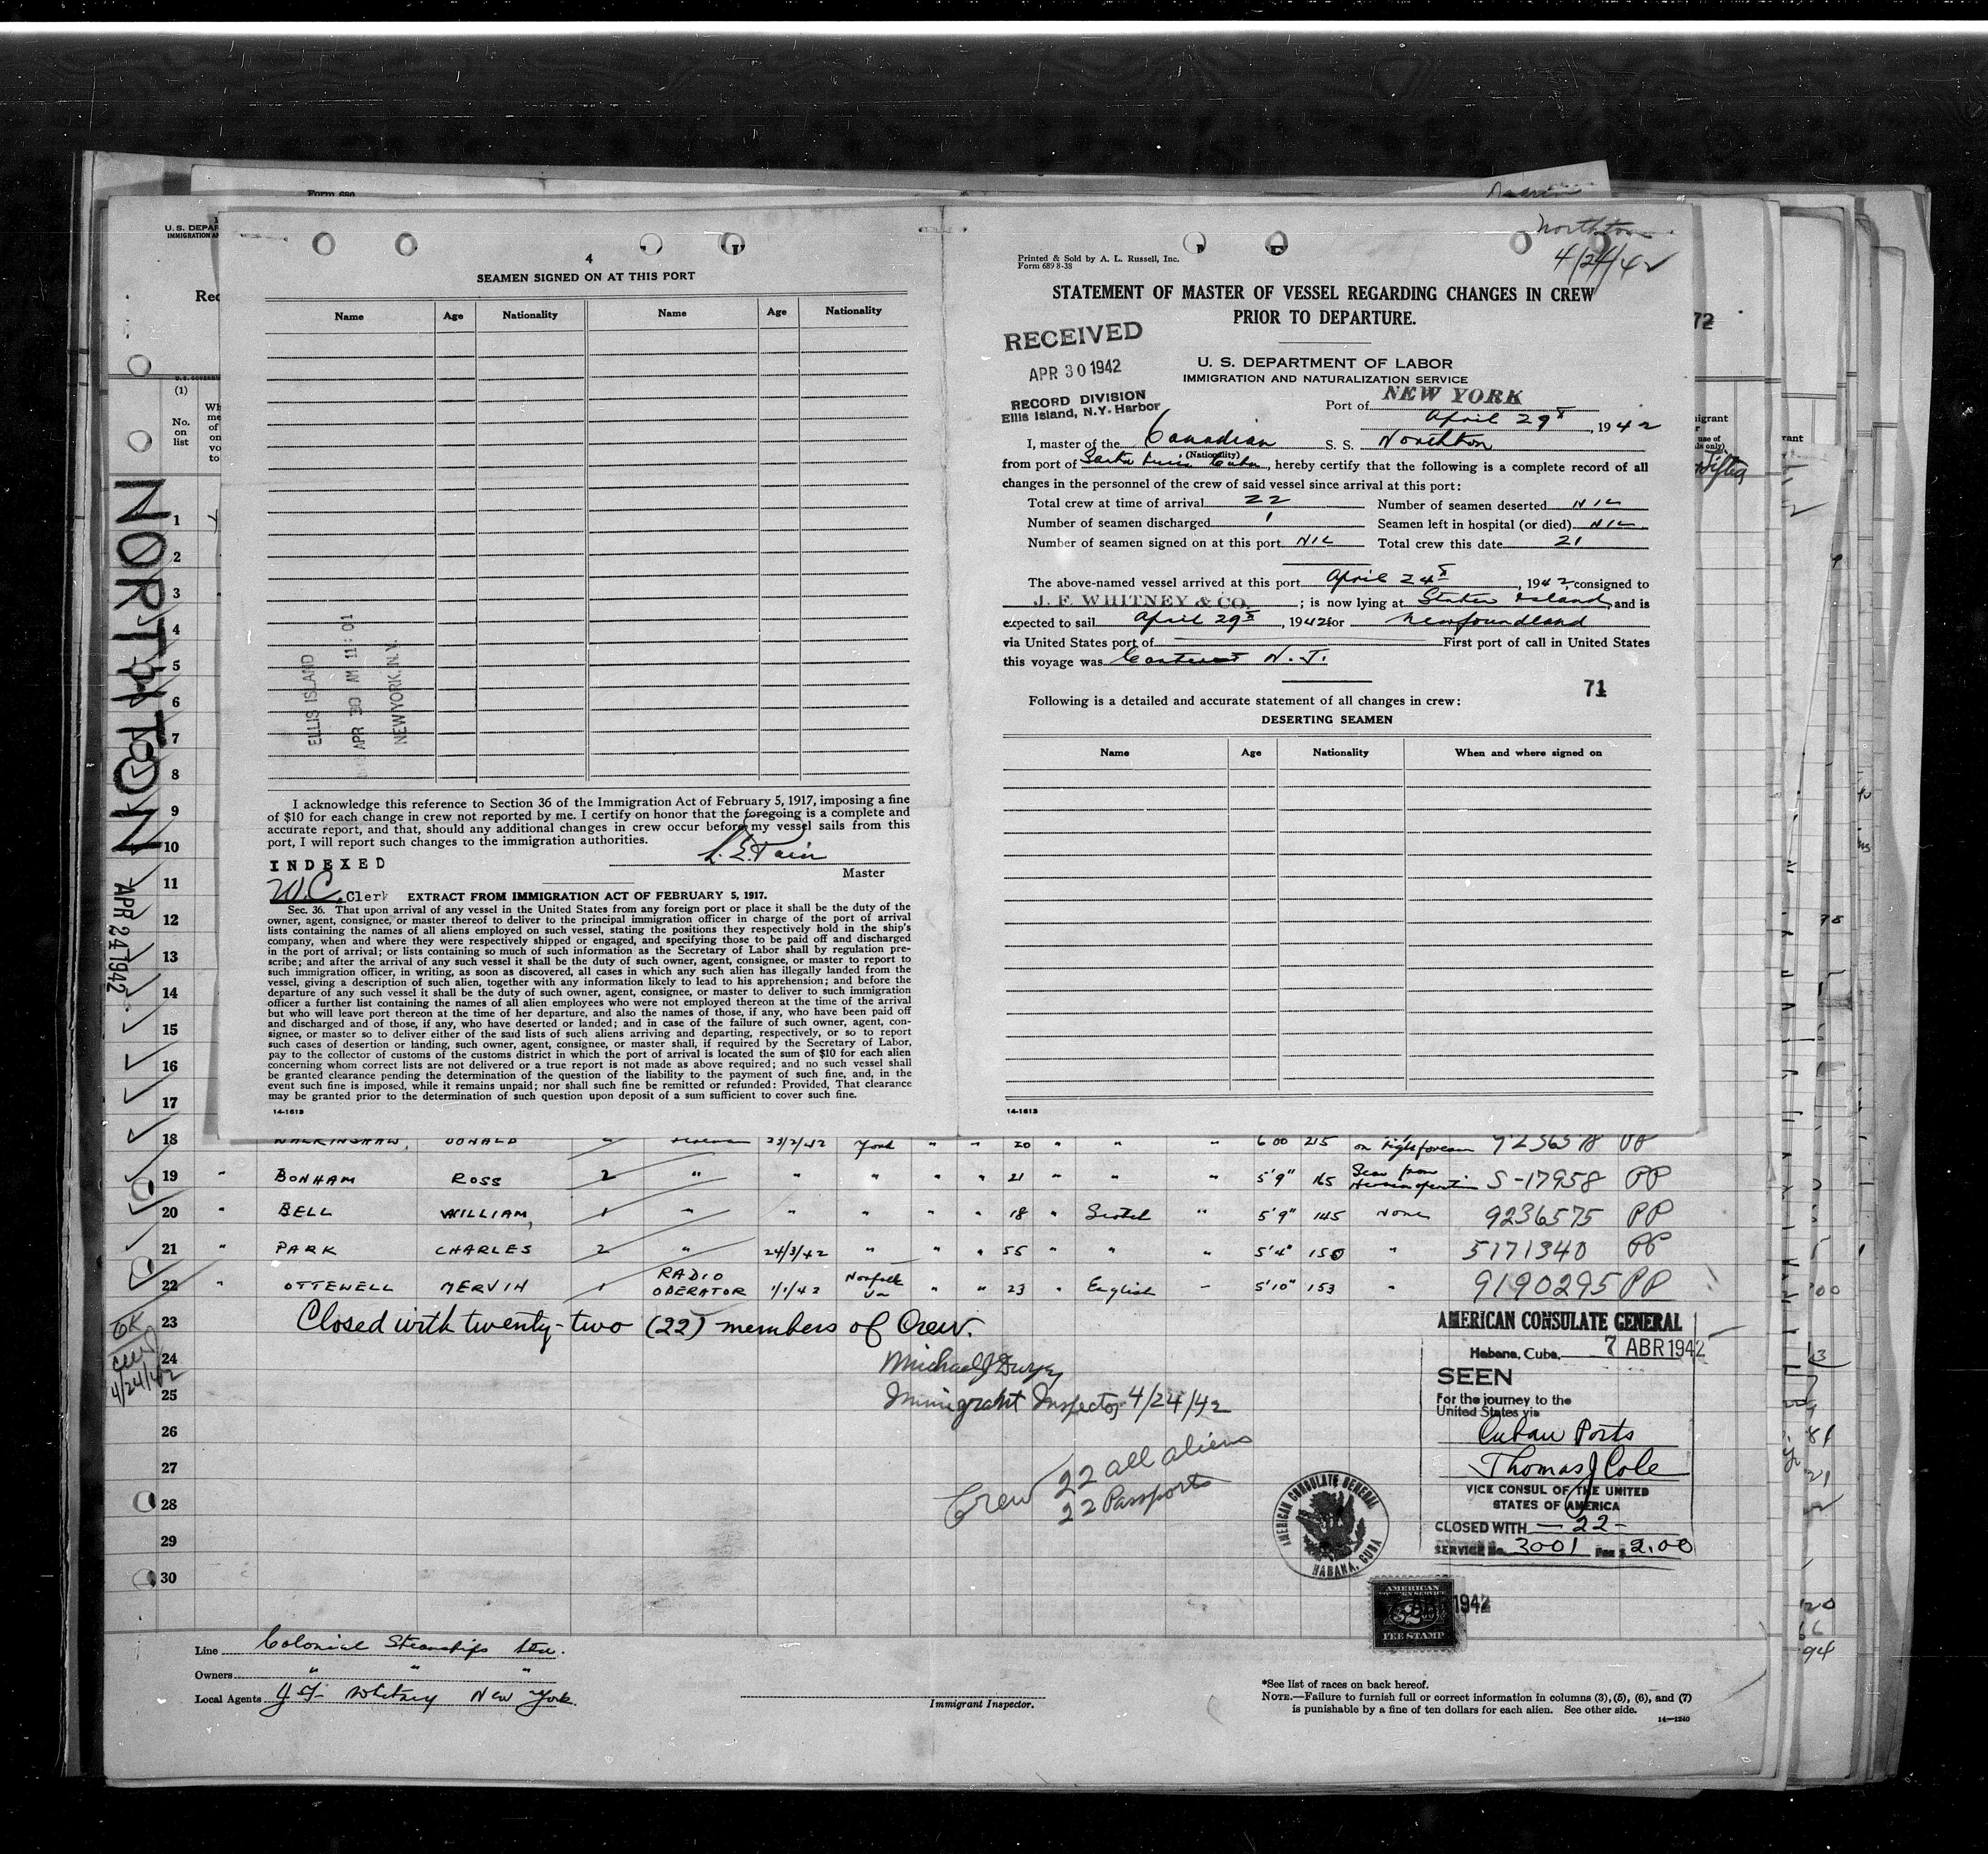 Form 680
Northton
4/24/42
4
SEAMEN SIGNED ON AT THIS PORT
Name Age Nationality Name Age Nationality
ELLIS ISLAND
APR 30 AM 11:01
NEW YORK, N.Y.
I acknowledge this reference to Section 36 of the Immigration Act of February 5, 1917, imposing a fine
of $10 for each change in crew not reported by me. I certify on honor that the foregoing is a complete and
accurate report, and that, should any additional changes in crew occur before my vessel sails from this
port, I will report such changes to the immigration authorities.
INDEXED
Master
W.C. Clerk
EXTRACT FROM IMMIGRATION ACT OF FEBRUARY 5, 1917.
Sec. 36. That upon arrival of any vessel in the United States from any foreign port or place it shall be the duty of the
owner, agent, consignee, or master thereof to deliver to the principal immigration officer in charge of the port of arrival
lists containing the names of all aliens employed on such vessel, stating the positions they respectively hold in the ship's
company, when and where they were respectively shipped or engaged, and specifying those to be paid off and discharged
in the port of arrival; or lists containing so much of such information as the Secretary of Labor shall by regulation pre-
scribe; and after the arrival of any such vessel it shall be the duty of such owner, agent, consignee, or master to report to
such immigration officer, in writing, as soon as discovered, all cases in which any such alien has illegally landed from the
vessel, giving a description of such alien, together with any information likely to lead to his apprehension; and before the
departure of any such vessel it shall be the duty of such owner, agent, consignee, or master to deliver to such immigration
officer a further list containing the names of all alien employees who were not employed thereon at the time of the arrival
but who will leave port thereon at the time of her departure, and also the names of those, if any, who have been paid off
and discharged and of those, if any, who have deserted or landed; and in case of the failure of such owner, agent, con-
signee, or master so to deliver either of the said lists of such aliens arriving and departing, respectively, or so to report
such cases of desertion or landing, such owner, agent, consignee, or master shall, if required by the Secretary of Labor,
pay to the collector of customs of the customs district in which the port of arrival is located the sum of $10 for each alien
concerning whom correct lists are not delivered or a true report is not made as above required; and no such vessel shall
be granted clearance pending the determination of the question of the liability to the payment of such fine, and, in the
event such fine is imposed, while it remains unpaid; nor shall such fine be remitted or refunded: Provided, That clearance
may be granted prior to the determination of such question upon deposit of a sum sufficient to cover such fine.
14-1613
Printed & Sold by A. L. Russell, Inc.
Form 689 8-38
STATEMENT OF MASTER OF VESSEL REGARDING CHANGES IN CREW
PRIOR TO DEPARTURE.
RECEIVED
APR 30 1942
RECORD DIVISION
Ellis Island, N.Y. Harbor
U. S. DEPARTMENT OF LABOR
IMMIGRATION AND NATURALIZATION SERVICE
Port of NEW YORK
April 29th, 1942
I, master of the Canadian S. S. Northton
(Nationality)
from port of Santa Lucia Cuba, hereby certify that the following is a complete record of all
changes in the personnel of the crew of said vessel since arrival at this port:
Total crew at time of arrival 22 Number of seamen deserted NIL
Number of seamen discharged 1 Seamen left in hospital (or died) NIL
Number of seamen signed on at this port NIL Total crew this date 21
The above-named vessel arrived at this port April 24th, 1942 consigned to
J. F. WHITNEY & CO. ; is now lying at Staten Island and is
expected to sail April 29th, 1942 for Newfoundland
via United States port of First port of call in United States
this voyage was Carteret N. J.
71
Following is a detailed and accurate statement of all changes in crew:
DESERTING SEAMEN
Name Age Nationality When and where signed on
14-1613
72
(1)
No.
on
list
NORTHTON
APR 24 1942
1
2
3
4
5
6
7
8
9
10
11
12
13
14
15
16
17
18 WALKINSHAW, DONALD " 23/2/42 York " " 20 " " " 6 00 215 on right forearm 9236578 PP
19 " BONHAM ROSS 2 " " " " " 21 " " " 5'9" 165 S-17958 PP
20 " BELL WILLIAM, 1 " " " " " 18 " Scotch " 5'9" 145 None 9236575 PP
21 " PARK CHARLES 2 " 24/3/42 " " " 55 " " " 5'4" 150 " 5171340 PP
22 " OTTEWELL MERVIN 1 RADIO OPERATOR 1/1/42 Norfolk Va " " 23 " English " 5'10" 153 " 9190295 PP
23 Closed with twenty-two (22) members of Crew.
24
25
26
27
28
29
30
OK
4/24/42
Michael J Dwyer
Immigrant Inspector 4/24/42
Crew 22 all aliens
22 Passports
AMERICAN CONSULATE GENERAL
Habana, Cuba, 7 ABR 1942
SEEN
For the journey to the
United States via
Cuban Ports
Thomas J Cole
VICE CONSUL OF THE UNITED
STATES OF AMERICA
CLOSED WITH — 22 —
SERVICE No. 3001 Fee $ 2.00
AMERICAN CONSULATE GENERAL
HABANA, CUBA
AMERICAN
FEE STAMP
ABR 1942
Line Colonial Steamships Ltd.
Owners " " "
Local Agents J. F. Whitney New York.
Immigrant Inspector.
*See list of races on back hereof.
NOTE.—Failure to furnish full or correct information in columns (3), (5), (6), and (7)
is punishable by a fine of ten dollars for each alien. See other side.
14—1240